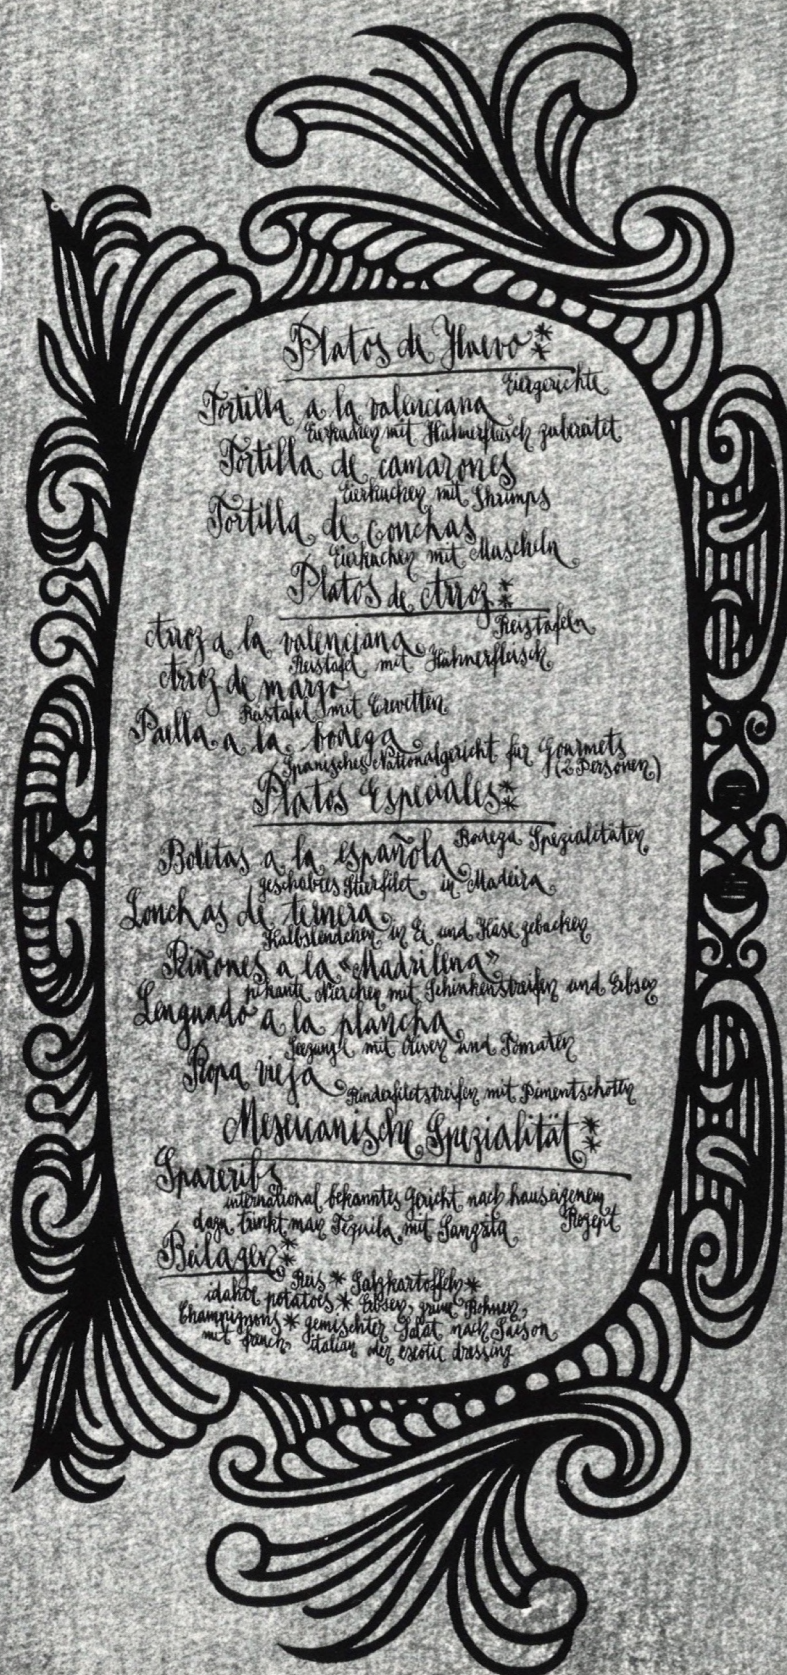 Platos de Huevo **
Eiergerichte
Tortilla a la valenciana
Eierkuchen mit Hühnerfleisch zubereitet
Tortilla de camarones
Eierkuchen mit Shrimps
Tortilla de conchas
Eierkuchen mit Muscheln
Platos de Arroz **
Reistafeln
Arroz a la valenciana
Reistafel mit Hühnerfleisch
Arroz de marzo
Reistafel mit Crevetten
Paella a la bodega
Spanisches Nationalgericht für Gourmets
(2 Personen)
Platos Especiales **
Bodega Spezialitäten
Bolitas a la española
geschabtes Stierfilet in Madeira
Lonchas de ternera
Kalbslendchen in Ei und Käse gebacken
Riñones a la «Madrilena»
pikante Nierchen mit Schinkenstreifen und Erbsen
Lenguado a la plancha
Seezunge mit Oliven und Tomaten
Ropa vieja
Rinderfiletstreifen mit Pimentschoten
Mexicanische Spezialität **
Spareribs
international bekanntes Gericht nach hauseigenem
Rezept
dazu trinkt man Tequila mit Sangrita
Beilagen **
Reis * Salzkartoffeln *
idahoe potatoes * Erbsen, grüne Bohnen,
Champignons * gemischter Salat nach Saison
mit french, italian oder exotic dressing